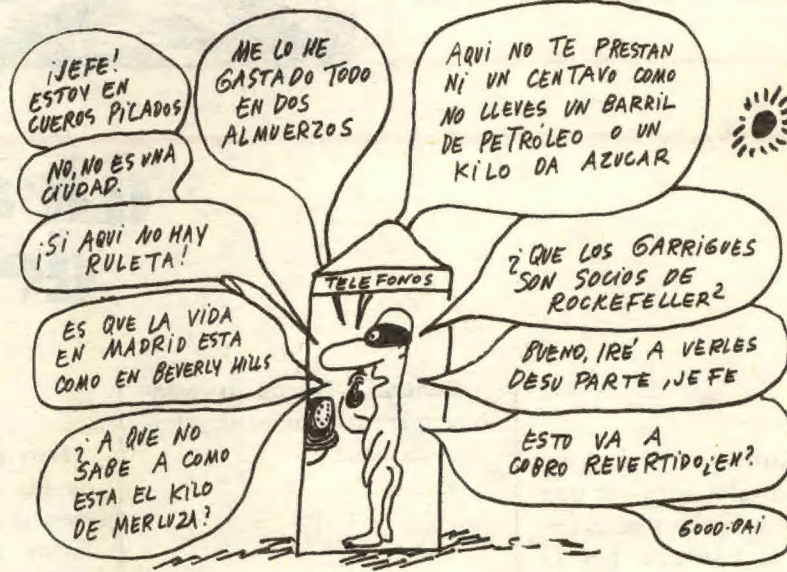 ¡JEFE!
ESTOY EN
CUEROS PILADOS
NO, NO ES UNA
CIUDAD.
¡SI AQUI NO HAY
RULETA!
ES QUE LA VIDA
EN MADRID ESTA
COMO EN BEVERLY HILLS
¿A QUE NO
SABE A COMO
ESTA EL KILO
DE MERLUZA?
ME LO HE
GASTADO TODO
EN DOS
ALMUERZOS
AQUI NO TE PRESTAN
NI UN CENTAVO COMO
NO LLEVES UN BARRIL
DE PETRÓLEO O UN
KILO DA AZUCAR
¿QUE LOS GARRIGUES
SON SOCIOS DE
ROCKEFELLER?
BUENO, IRÉ A VERLES
DESU PARTE, JEFE
ESTO VA A
COBRO REVERTIDO ¿EH?
GOOD-DAI
TELEFONOS